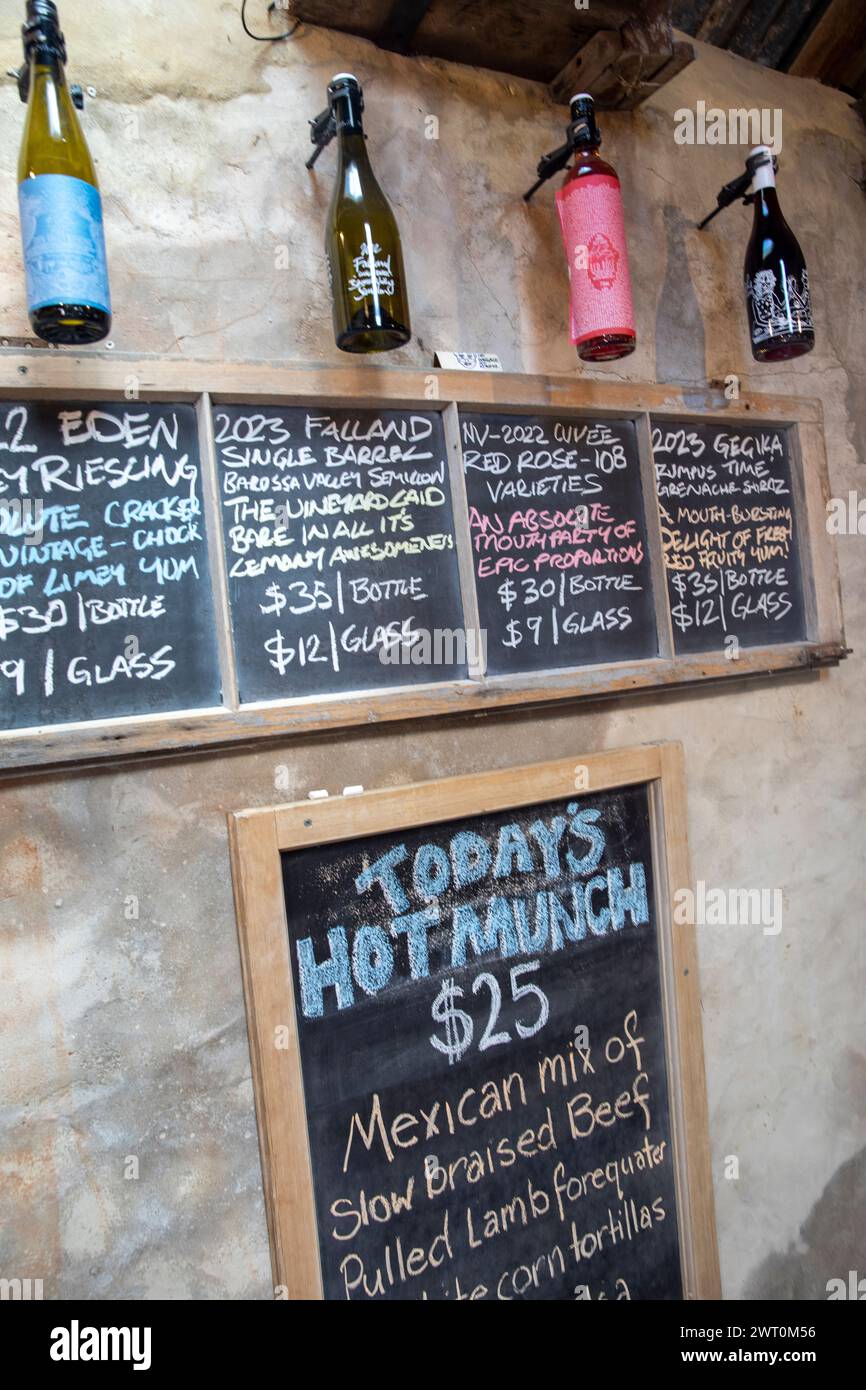 2 EDEN
EY RIESLING
OLUTE CRACKER
VINTAGE - CHOCK
OF LIMEY YUM
$30 | BOTTLE
9 | GLASS
2023 FALLAND
SINGLE BARREL
BAROSSA VALLEY SEMILLON
THE VINEYARD LAID
BARE IN ALL IT'S
LEMONY AWESOMENESS
$35 | BOTTLE
$12 | GLASS
NV-2022 CUVÉE
RED ROSE - 108
VARIETIES
AN ABSOLUTE
MOUTH PARTY OF
EPIC PROPORTIONS
$30 | BOTTLE
$9 | GLASS
2023 GEGIKA
RUMPUS TIME'
GRENACHE SHIRAZ
A MOUTH-BURSTING
DELIGHT OF FRESH
RED FRUITY YUM!
$35 | BOTTLE
$12 | GLASS
TODAY'S
HOT MUNCH
$25
Mexican mix of
Slow braised Beef
Pulled Lamb forequater
corn tortillas
alamy
Image ID: 2WT0M56
www.alamy.com